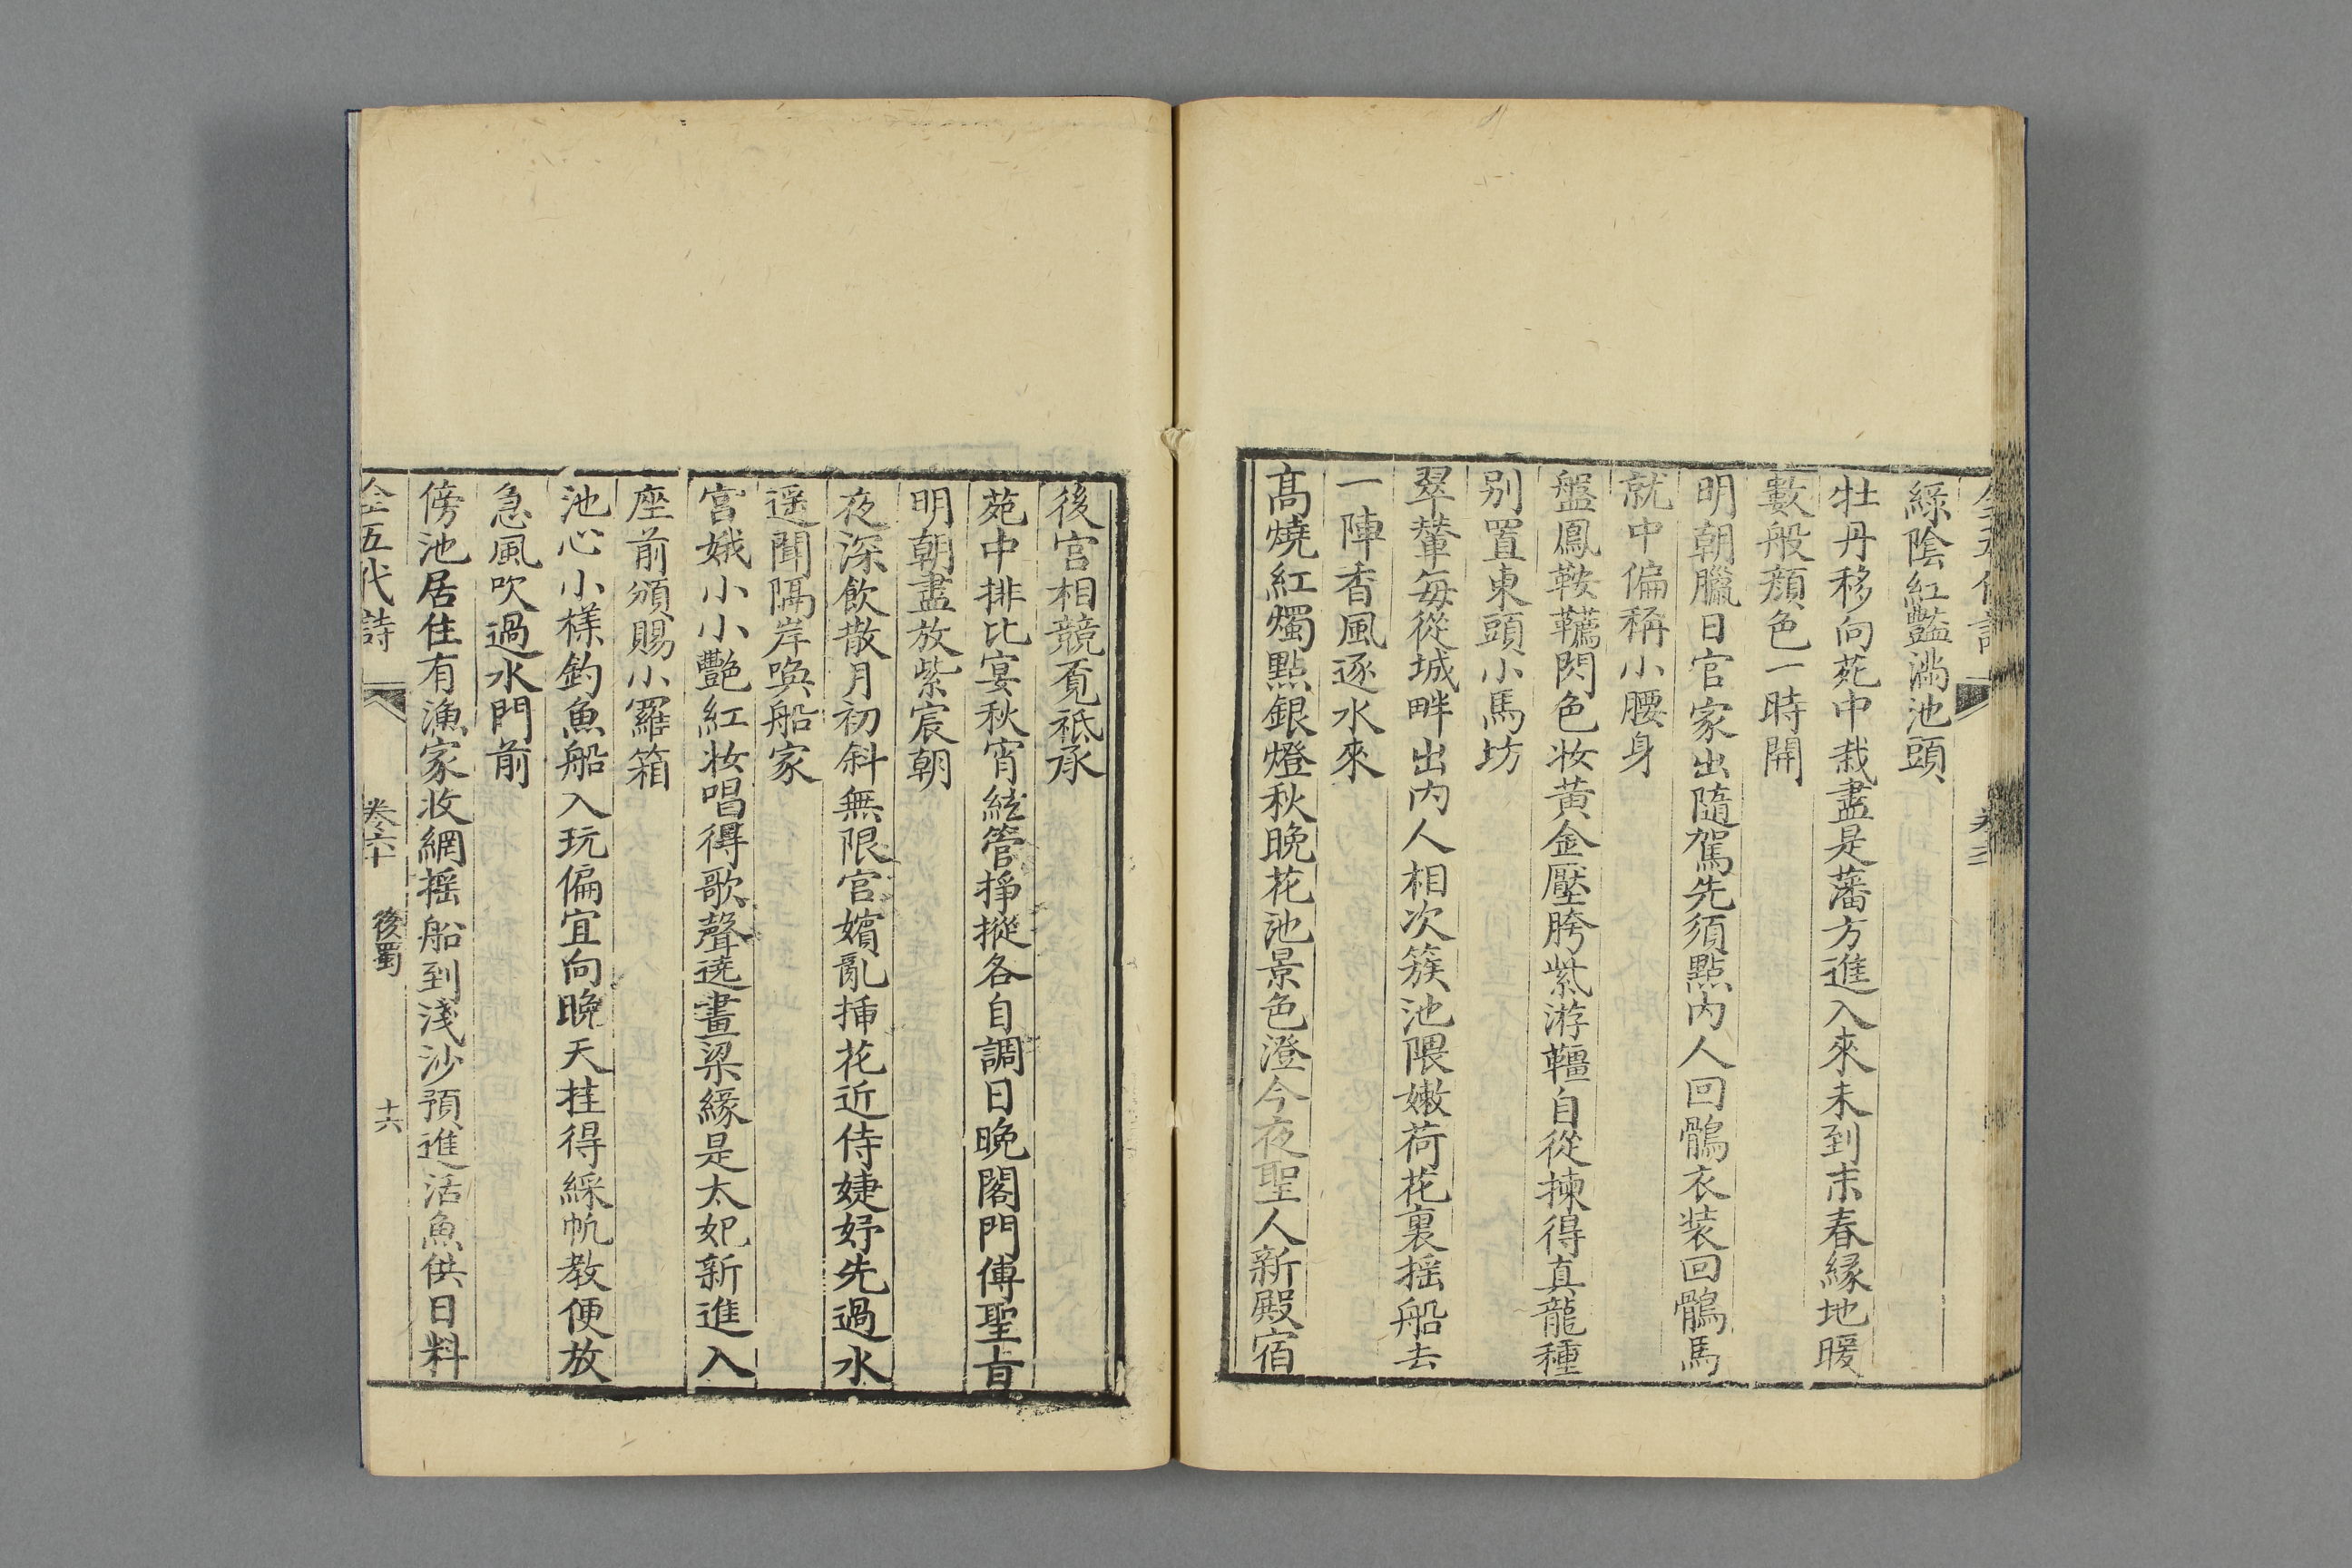 綠陰紅豔滿池頭
牡丹移向苑中栽盡是藩方進入來未到末春緣地暖
數般顏色一時開
明朝臘日官家出隨駕先須點内人回鶻衣裝回鶻馬
就中偏稱小腰身
盤鳳鞍韉閃色妝黃金壓胯紫游韁自從揀得真龍種
别置東頭小馬坊
翠輦每從城畔出内人相次簇池隈嫩荷花裏摇船去
一陣香風逐水來
高燒紅燭點銀燈秋晚花池景色澄今夜聖人新殿宿
後宮相競覔祗承
苑中排比宴秋宵絃管掙摐各自調日晚閣門傳聖旨
明朝盡放紫宸朝
夜深飲散月初斜無限宮嬪亂插花近侍婕妤先過水
遥聞隔岸喚船家
宮娥小小艷紅妝唱得歌聲遶畫梁緣是太妃新進入
座前頒賜小羅箱
池心小樣釣魚船入玩偏宜向晚天挂得綵帆教便放
急風吹過水門前
傍池居住有漁家收網摇船到淺沙預進活魚供日料
全五代詩 卷六十 後蜀 十六